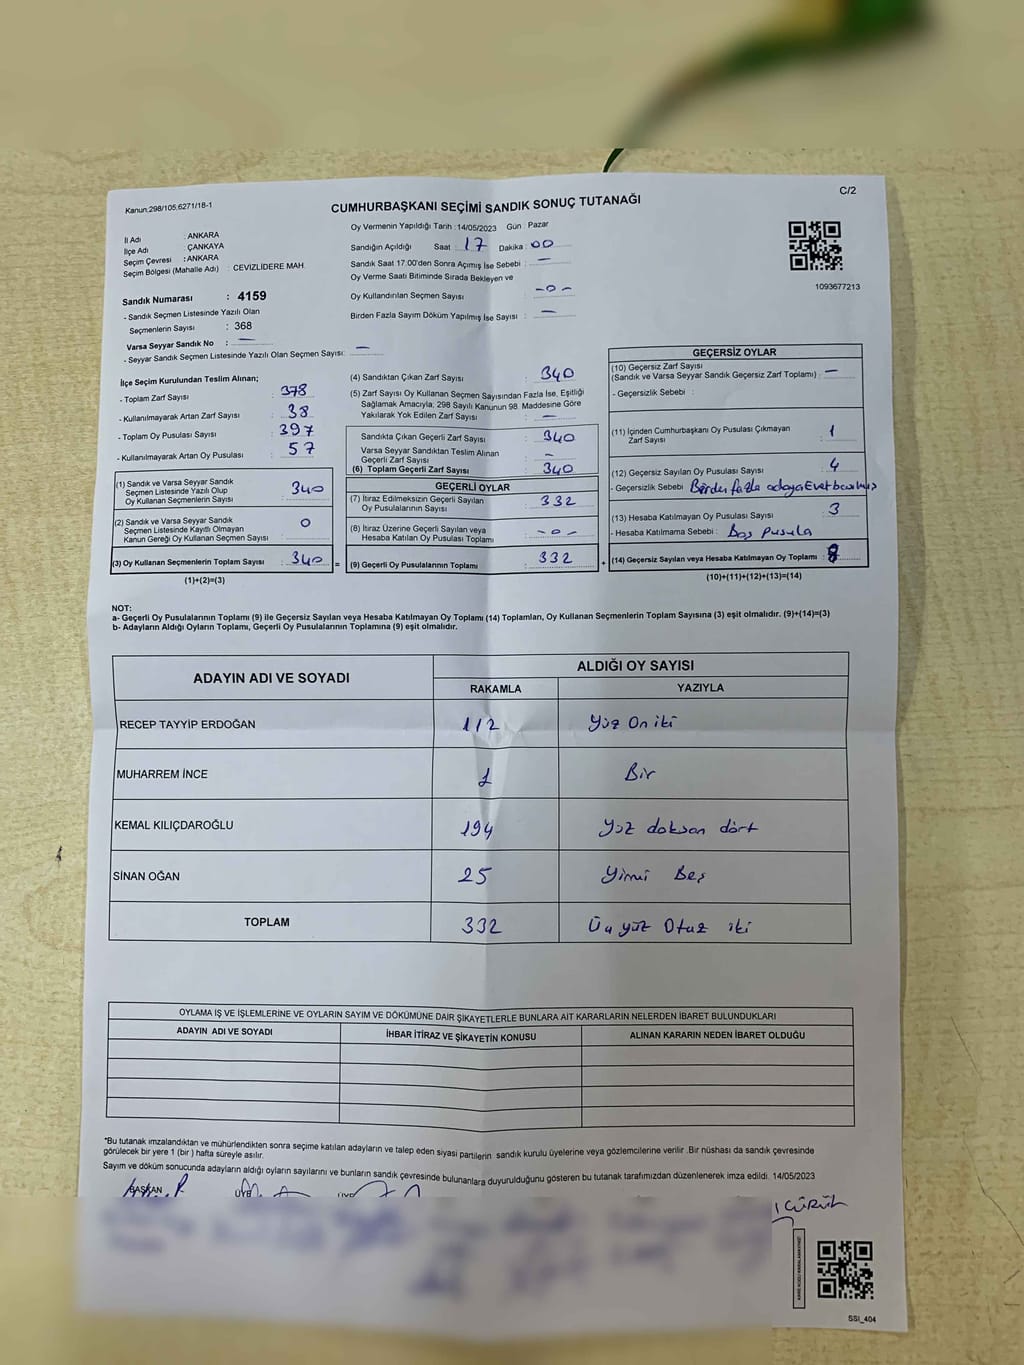 Kanun:298/105,6271/18-1
CUMHURBAŞKANI SEÇİMİ SANDIK SONUÇ TUTANAĞI
C/2
İl Adı : ANKARA
İlçe Adı : ÇANKAYA
Seçim Çevresi : ANKARA
Seçim Bölgesi (Mahalle Adı) : CEVİZLİDERE MAH.
Sandık Numarası : 4159
- Sandık Seçmen Listesinde Yazılı Olan
Seçmenlerin Sayısı : 368
Varsa Seyyar Sandık No : —
- Seyyar Sandık Seçmen Listesinde Yazılı Olan Seçmen Sayısı: —
Oy Vermenin Yapıldığı Tarih :14/05/2023 Gün : Pazar
Sandığın Açıldığı Saat : 17 Dakika : 00
Sandık Saat 17:00'den Sonra Açımış İse Sebebi : —
Oy Verme Saati Bitiminde Sırada Bekleyen ve
Oy Kullandırılan Seçmen Sayısı : -0-
Birden Fazla Sayım Döküm Yapılmış İse Sayısı : —
1093677213
İlçe Seçim Kurulundan Teslim Alınan;
- Toplam Zarf Sayısı : 378
- Kullanılmayarak Artan Zarf Sayısı : 38
- Toplam Oy Pusulası Sayısı : 397
- Kullanılmayarak Artan Oy Pusulası : 57
(1) Sandık ve Varsa Seyyar Sandık
Seçmen Listesinde Yazılı Olup
Oy Kullanan Seçmenlerin Sayısı : 340
(2) Sandık ve Varsa Seyyar Sandık
Seçmen Listesinde Kayıtlı Olmayan
Kanun Gereği Oy Kullanan Seçmen Sayısı : 0
(3) Oy Kullanan Seçmenlerin Toplam Sayısı : 340
(1)+(2)=(3)
=
(4) Sandıktan Çıkan Zarf Sayısı : 340
(5) Zarf Sayısı Oy Kullanan Seçmen Sayısından Fazla İse, Eşitliği
Sağlamak Amacıyla; 298 Sayılı Kanunun 98. Maddesine Göre
Yakılarak Yok Edilen Zarf Sayısı : —
Sandıkta Çıkan Geçerli Zarf Sayısı : 340
Varsa Seyyar Sandıktan Teslim Alınan
Geçerli Zarf Sayısı : -
(6) Toplam Geçerli Zarf Sayısı : 340
GEÇERLİ OYLAR
(7) İtiraz Edilmeksizin Geçerli Sayılan
Oy Pusulalarının Sayısı : 332
(8) İtiraz Üzerine Geçerli Sayılan veya
Hesaba Katılan Oy Pusulası Toplamı : -0-
(9) Geçerli Oy Pusulalarının Toplamı : 332
+
GEÇERSİZ OYLAR
(10) Geçersiz Zarf Sayısı
(Sandık ve Varsa Seyyar Sandık Geçersiz Zarf Toplamı) : —
- Geçersizlik Sebebi :
(11) İçinden Cumhurbaşkanı Oy Pusulası Çıkmayan
Zarf Sayısı : 1
(12) Geçersiz Sayılan Oy Pusulası Sayısı : 4
- Geçersizlik Sebebi : Birden fazla adaya Evet basılmış
(13) Hesaba Katılmayan Oy Pusulası Sayısı : 3
- Hesaba Katılmama Sebebi : Boş pusula
(14) Geçersiz Sayılan veya Hesaba Katılmayan Oy Toplamı : 8
(10)+(11)+(12)+(13)=(14)
NOT:
a- Geçerli Oy Pusulalarının Toplamı (9) ile Geçersiz Sayılan veya Hesaba Katılmayan Oy Toplamı (14) Toplamları, Oy Kullanan Seçmenlerin Toplam Sayısına (3) eşit olmalıdır. (9)+(14)=(3)
b- Adayların Aldığı Oyların Toplamı, Geçerli Oy Pusulalarının Toplamına (9) eşit olmalıdır.
ADAYIN ADI VE SOYADI
ALDIĞI OY SAYISI
RAKAMLA YAZIYLA
RECEP TAYYİP ERDOĞAN 112 Yüz On iki
MUHARREM İNCE 1 Bir
KEMAL KILIÇDAROĞLU 194 Yüz doksan dört
SİNAN OĞAN 25 Yirmi Beş
TOPLAM 332 Üç yüz Otuz iki
OYLAMA İŞ VE İŞLEMLERİNE VE OYLARIN SAYIM VE DÖKÜMÜNE DAİR ŞİKAYETLERLE BUNLARA AİT KARARLARIN NELERDEN İBARET BULUNDUKLARI
ADAYIN ADI VE SOYADI İHBAR İTİRAZ VE ŞİKAYETİN KONUSU ALINAN KARARIN NEDEN İBARET OLDUĞU
*Bu tutanak imzalandıktan ve mühürlendikten sonra seçime katılan adayların ve talep eden siyasi partilerin sandık kurulu üyelerine veya gözlemcilerine verilir .Bir nüshası da sandık çevresinde
görülecek bir yere 1 (bir ) hafta süreyle asılır.
Sayım ve döküm sonucunda adayların aldığı oyların sayılarını ve bunların sandık çevresinde bulunanlara duyurulduğunu gösteren bu tutanak tarafımızdan düzenlenerek imza edildi. 14/05/2023
BAŞKAN ÜYE ÜYE
SSI_404